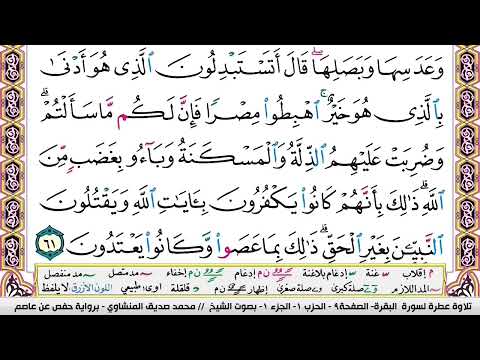 وَعَدَسِهَا وَبَصَلِهَا ۖ قَالَ أَتَسْتَبْدِلُونَ ٱلَّذِى هُوَ أَدْنَىٰ
بِٱلَّذِى هُوَ خَيْرٌ ۚ ٱهْبِطُوا۟ مِصْرًا فَإِنَّ لَكُم مَّا سَأَلْتُمْ ۗ
وَضُرِبَتْ عَلَيْهِمُ ٱلذِّلَّةُ وَٱلْمَسْكَنَةُ وَبَآءُو بِغَضَبٍ مِّنَ
ٱللَّهِ ۗ ذَٰلِكَ بِأَنَّهُمْ كَانُوا۟ يَكْفُرُونَ بِـَٔايَٰتِ ٱللَّهِ وَيَقْتُلُونَ
ٱلنَّبِيِّـۧنَ بِغَيْرِ ٱلْحَقِّ ۗ ذَٰلِكَ بِمَا عَصَوا۟ وَّكَانُوا۟ يَعْتَدُونَ ٦١
م إقلاب ـ غنة ـ إدغام بلاغنة ن م إدغام ن م إخفاء ـ مد متصل ـ مد منفصل
ـ المد اللازم و ے صلة كبرى و ے صلة صغرى إظهار ن م د قلقلة اوى: طبيعي اللون الأزرق لا يلفظ
تلاوة عطرة لسورة البقرة- الصفحة٩ - الحزب ١- الجزء ١- بصوت الشيخ // محمد صديق المنشاوي - برواية حفص عن عاصم